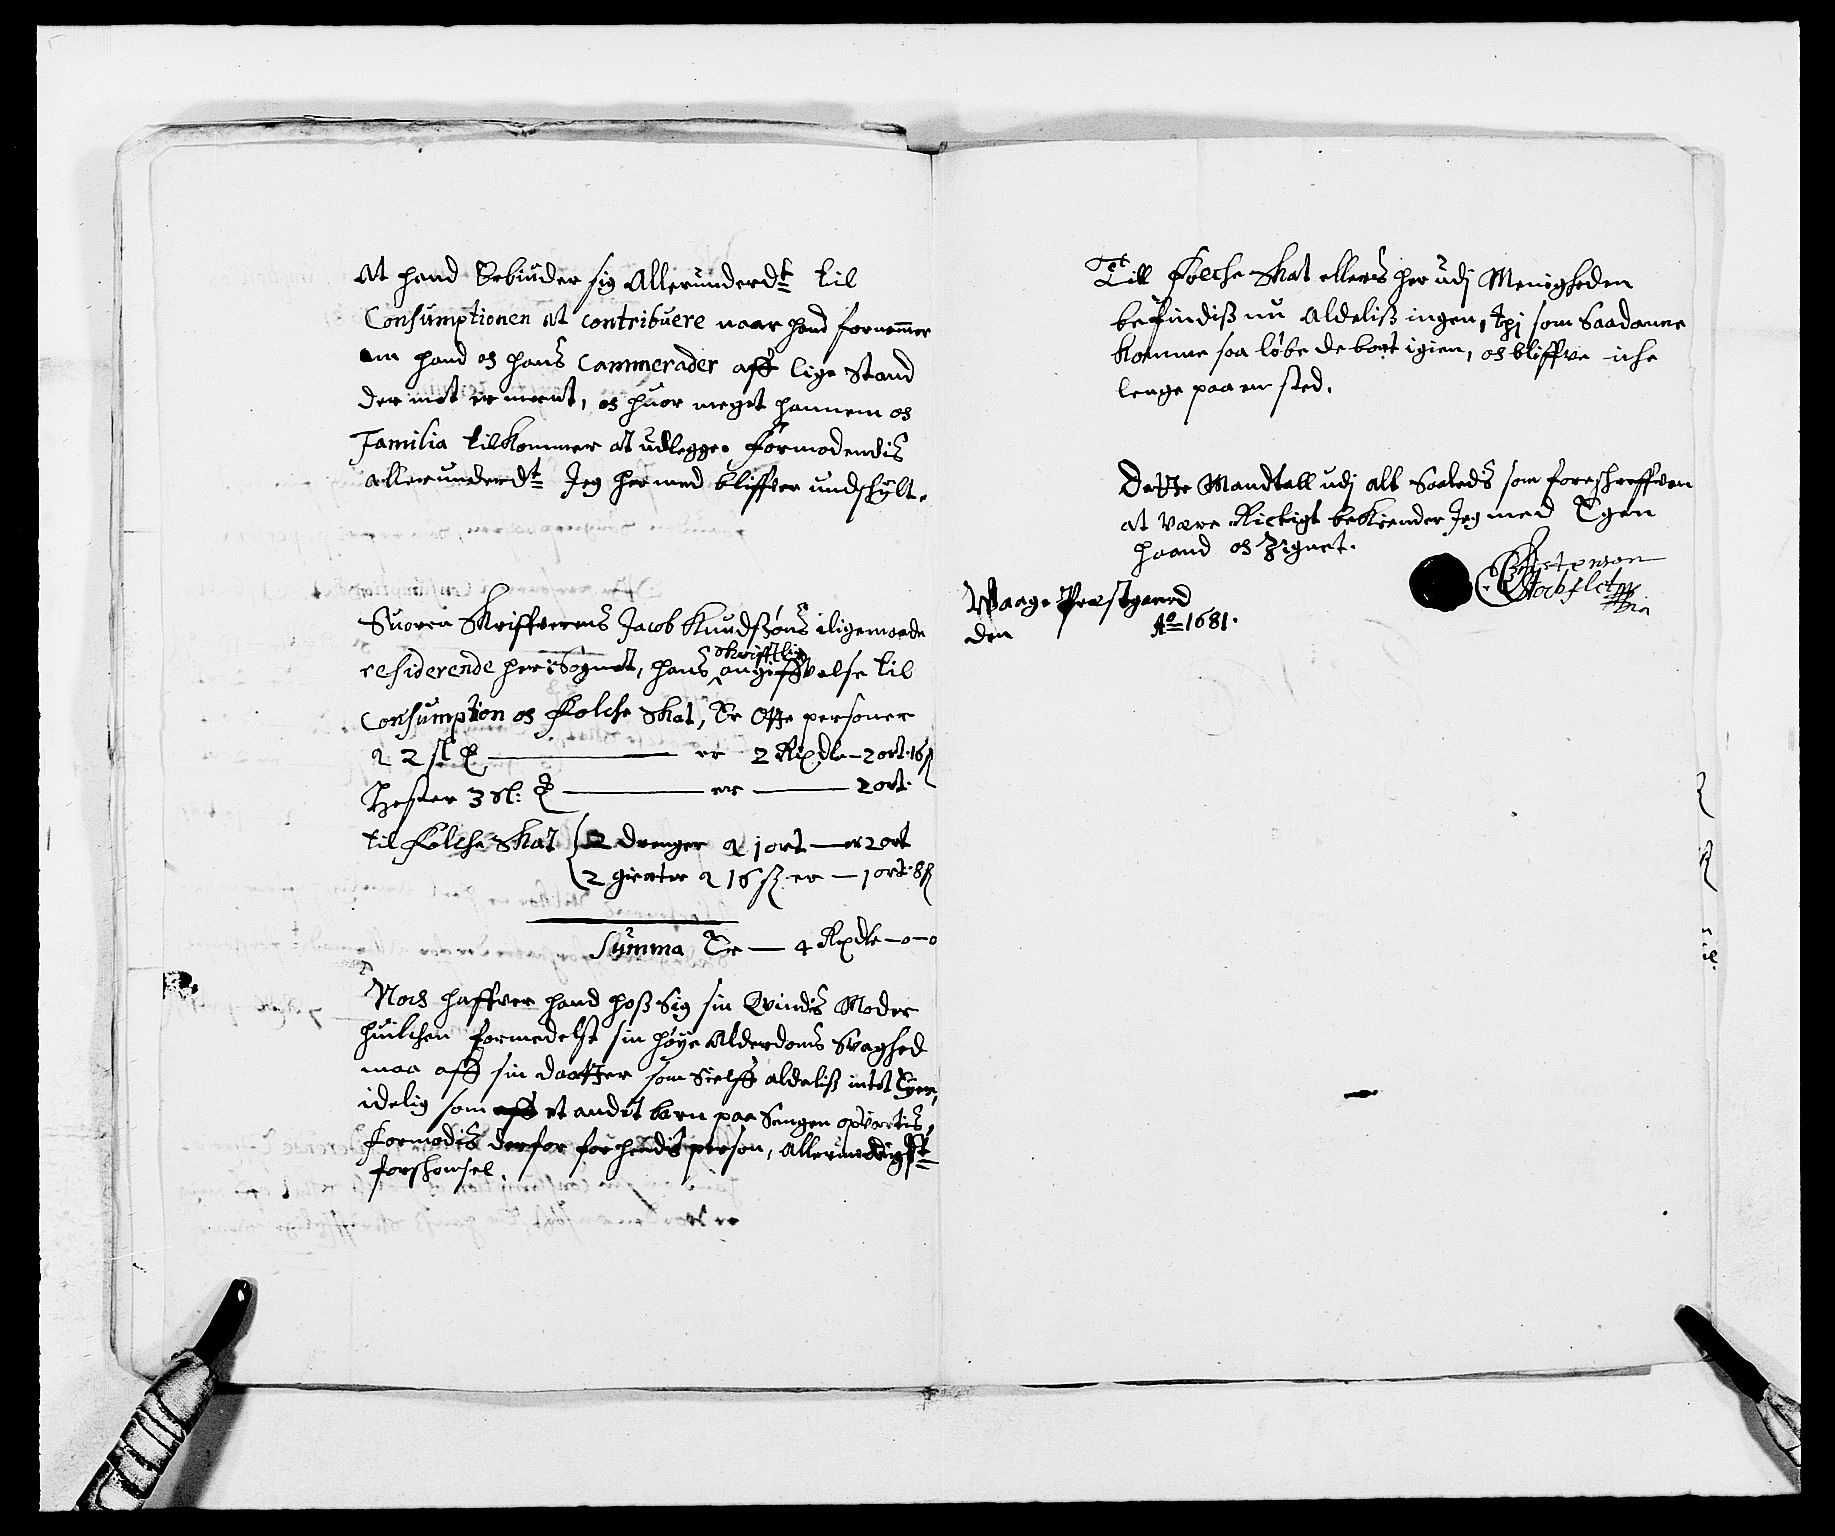 At hand Erbiuder sig Allerunderdt til
Consumptionen at contribuere naar hand fornemmer
en hand og hans Cammerader aff lige Stand
der mot er ment, og huor meget hannem og
Familia tilkommer at udlegge. Formodendis
allerunderdt Jeg hermed bliffver undskylt.
Suoren Skriffverens Jacob Knudsøns iligemaade
residerende her i Sognet, hans skrifftlig angiffvelse til
Consumption og Folche Skat, Er Otte personer
a 2 sl ℔ — er 2 Rixdlr – 2 ort 16 ß
Hester 3 st: — er — 2 ort.
til Folche Skat 2 drenger a 1 ort — er 2 ort
2 gienter a 16 ß er — 1 ort 8 ß
Summa Er — 4 Rixdlr – 0 – 0
Noch haffver hand hoß Sig sin Qvindis Moder
huilchen formedelst sin høye Alderdoms Svaghed
maa aff sin daatter som Sielff aldeliß intet Eyer,
idelig som et andet barn paa Sengen opvartis,
Formodis derfor for hendis person, Allernaadigste
forskonsel.
Till Folche Skat ellers her udj Menigheden
befindiß nu aldeliß ingen, thj som Saadanne
komme saa løbe de bort igien, og bliffve iche
lenge paa en sted.
Dette Mandtall udj alt Saaledis som foreskreffven
at være Rictigt bekiender Jeg med Egen
haand og Zignet.
Waage Præstgaard
den Ao 1681.
Stockfleth